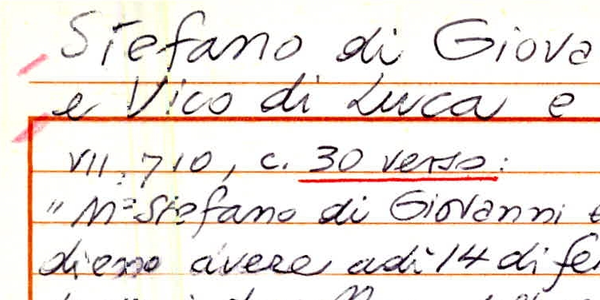 Stefano di Giova
e Vico di Luca e
VII. 710, c. 30 verso:
"Mº Stefano di Giovanni e
dieno avere adì 14 di fe